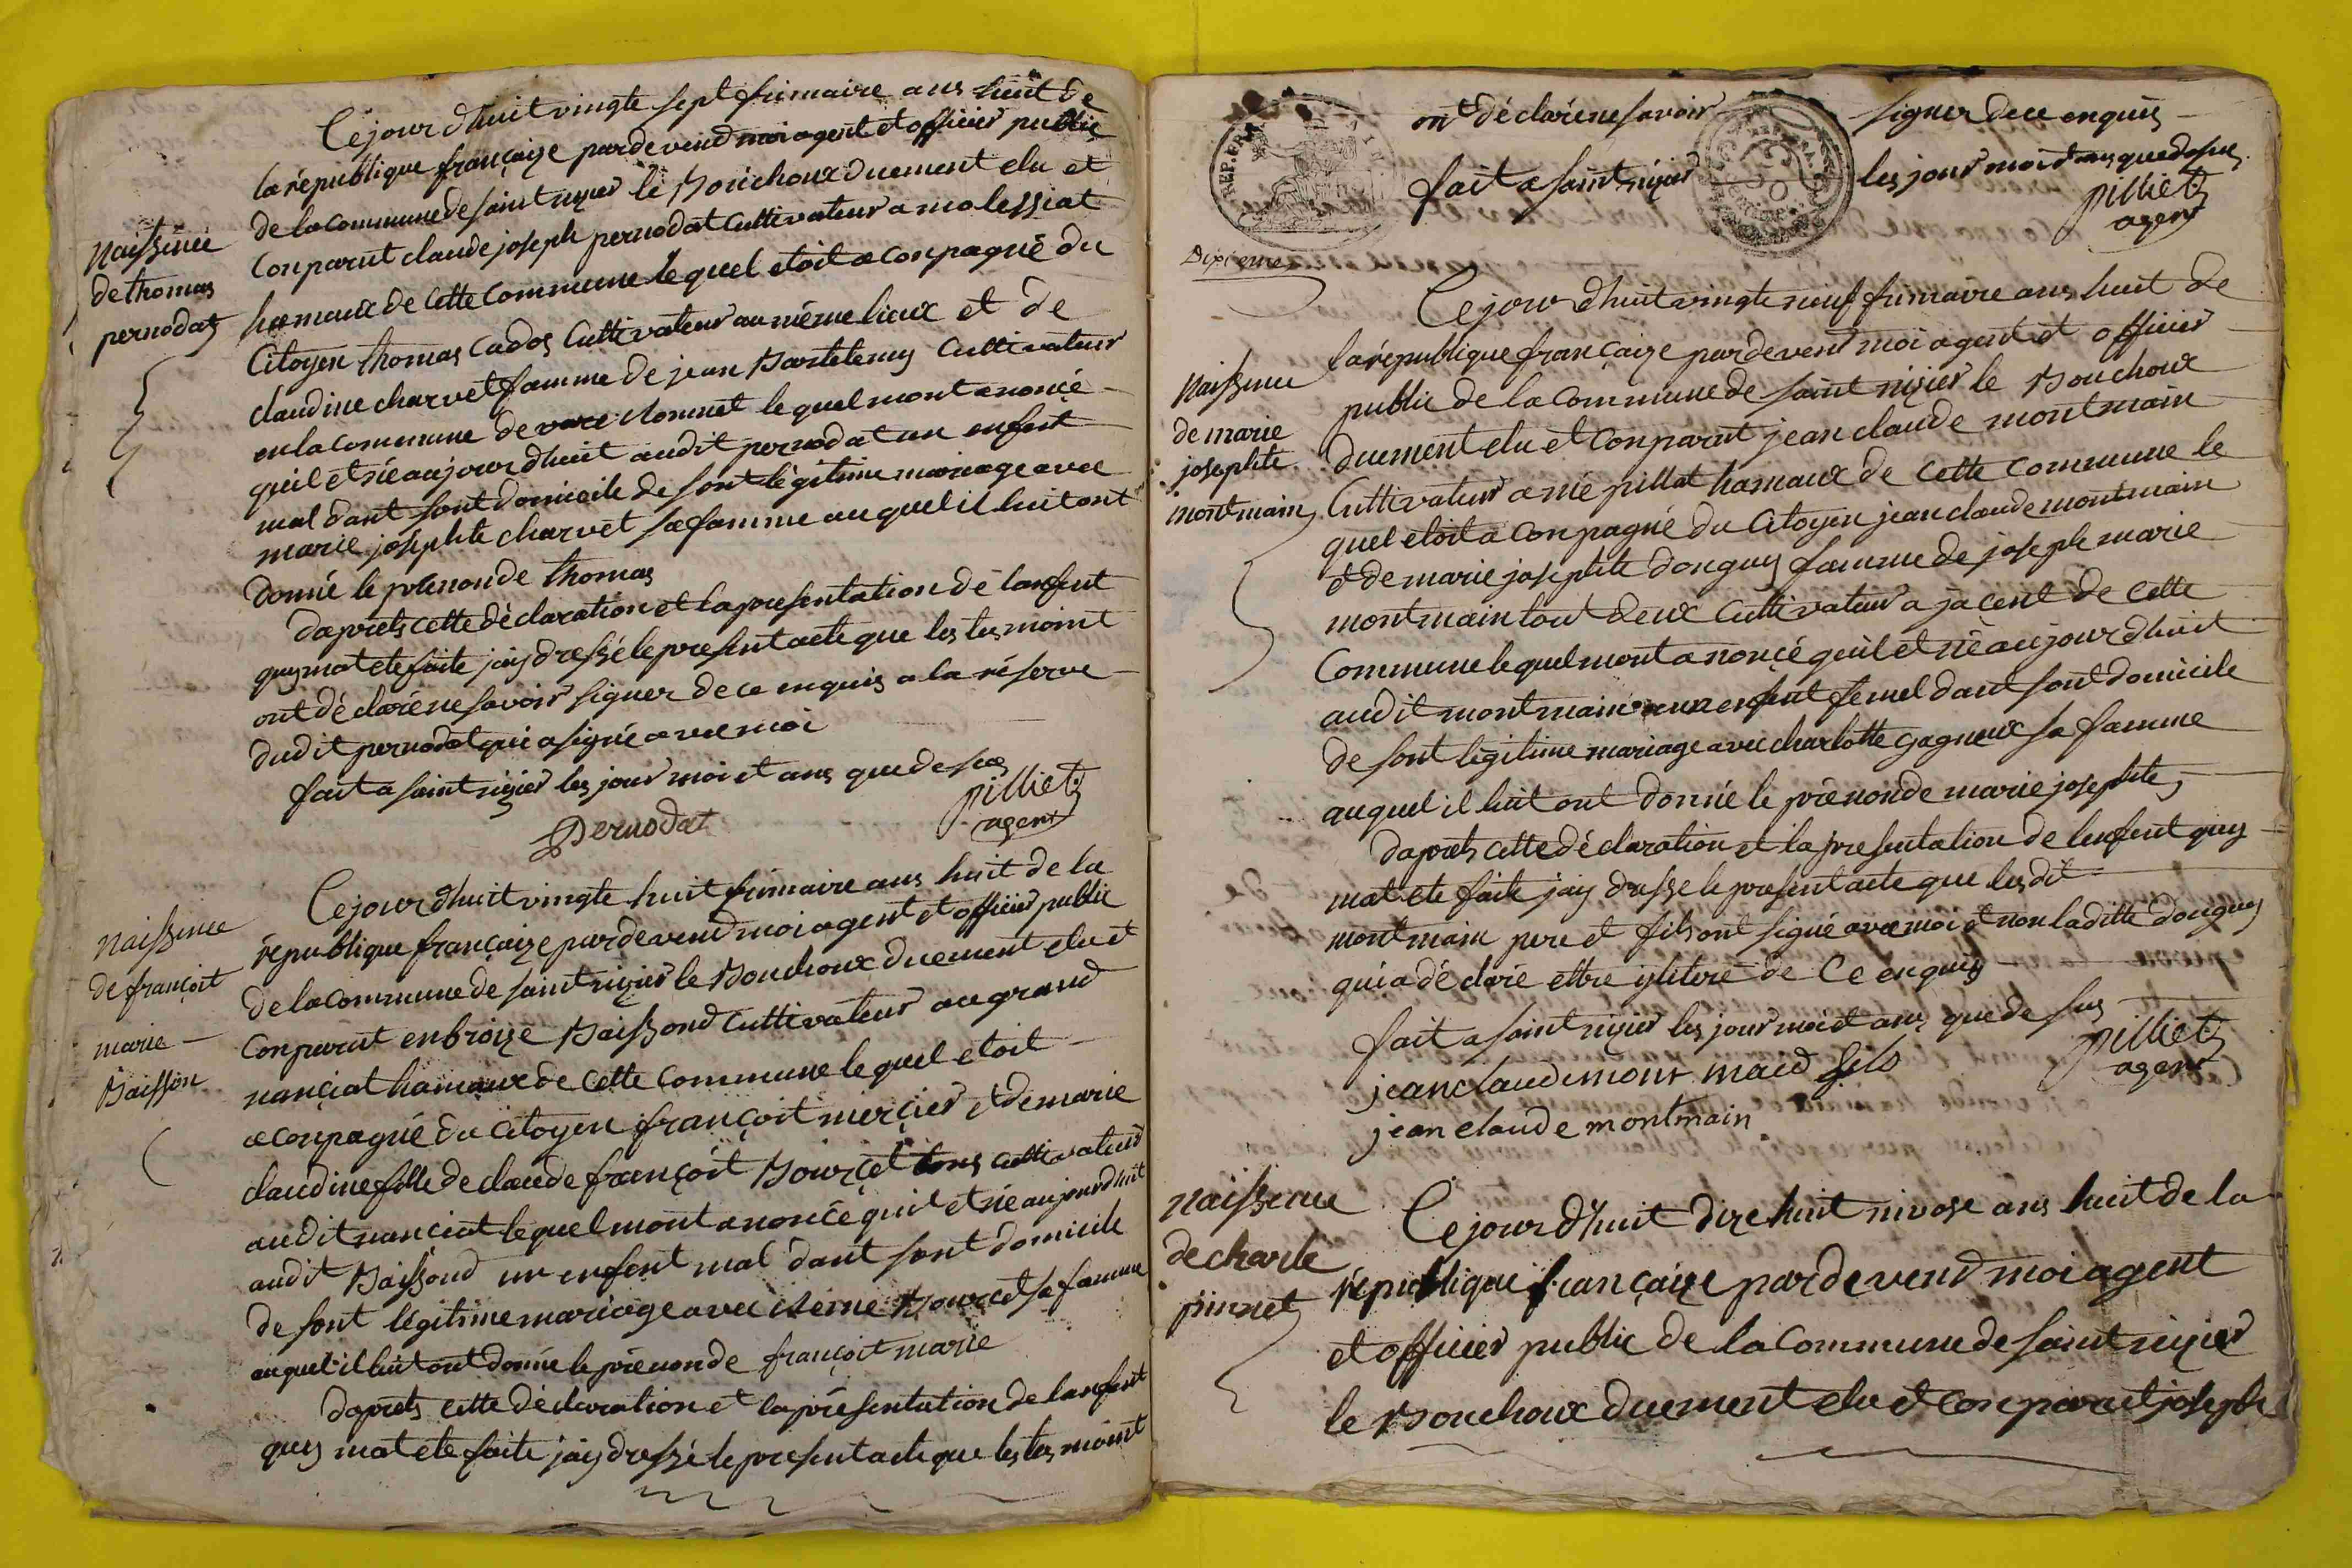 Cejour dhuit vingte sept frimaire ans huit de
la rėpublique françaize pardevend moi agent et officier public
de la commune de saint nizier le Bouchoux duement elu et
Conparut claude joseph pernodat cultivateur a molessiat
hamaux de cette commune le quel etoit aconpagné du
Citoyen thomas Cados Cultivateur au même lieux et de
claudine charvet famme de jean Bartelemy Cultivateur
en la commune de lequel mont anoncé
quil et né aujour dhuit audit pernodat un enfent
mal dant sont domicile de sont lėgitime mariage avec
marie josephte charvet sa famme auquel il luit ont
donné le prénon de thomas
daprets cette dėclaration et la presentation de lanfent
quy mat ete faite jay dressé le present acte que les tesmoint
ont déclaré ne savoir signer de ce enquis a la rėserve
dudit pernodat qui a signé avec moi
fait a saint nizier les jour moi et ans que de sus
pernodat
pilliet
agent
Naissence
de thomas
pernodat
Cejour dhuit vingte huit frimaire ans huit de la
rėpublique françaize pardevend moi agent et officier public
de la commune de saint nizier le Bouchoux duement elu et
Conparut enbroize Baissond cultivateur au grand
nanciat hamaux de cette commune le quel etoit
aconpagné du Citoyen françoit mercier et de marie
claudine fille de claude françoit Bourcet tous cultivateur
audit nanciat lequel mont anoncé quil et né aujourdhuit
audit Baissond un enfent mal dant sont domicile
de sont lėgitime mariage avec Bourcet sa famme
auquel il luit ont donné le prénon de françoit marie
daprets cette dėclaration et la présentation de lanfent
quy mat ete faite jay dressé le present acte que les tesmoint
Naissence
de françoit
marie
Baisson
ont déclaré ne savoir signer de ce enquis
fait a saint nizier les jour moi et ans que de sus
pilliet
agent
REP. FRA
Dixieme
Cejour dhuit vingte neuf frimaire ans huit de
la rėpublique françaize pardevent moi agent et officier
public de la commune de saint nizier le Bouchoux
duement elu et Conparut jean claude montmain
Cultivateur a mépillat hamaux de cette commune le
quel etoit aconpagné du Citoyen jean claude montmain
et de marie josephte donguy famme de joseph marie
montmain tout deux cultivateur a jacent de cette
Commune lequel mont anoncé quil et né aujour dhuit
audit montmain un enfent femel dant sont domicile
de sont légitime mariage avec charlotte gagneux sa famme
auquel il luit ont donné le prénon de marie josephte
daprets cette déclaration et la presentation de lenfent quy
mat ete faite jay dressé le present acte que lesdit
montmain pere et fils ont signé avec moi et non laditte donguy
qui a déclaré ettre ylitéré de ce enquis
fait a saint nizier les jour moi et ans que de sus
jean claude mont maid fils
jean claude montmain
pilliet
agent
Naissence
de marie
josephte
montmain
Cejour dhuit dixe huit nivose ans huit de la
rėpublique françaize pardevend moi agent
et officier public de la commune de saint nizier
le Bouchoux duement elu et Conparut joseph
Naissence
de charle
pinnet